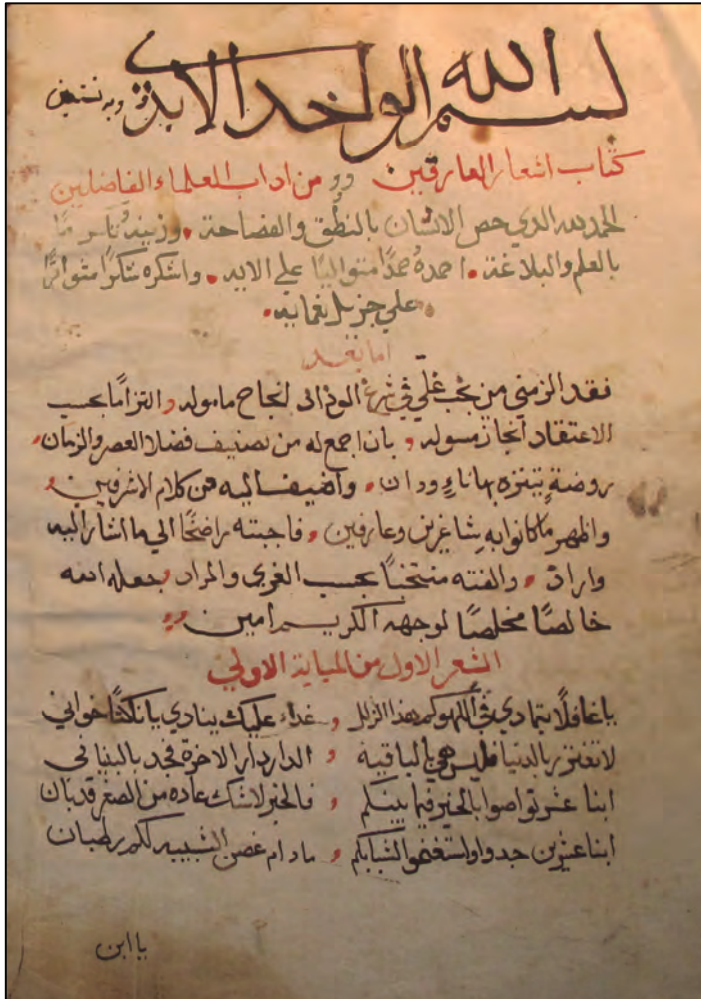 بسم الله الواحد الابدي وبه نستعين
كتاب اشعار العارفين من اداب العلماء الفاضلين
الحمد لله الذي خص الانسان بالنطق والفصاحة وزينه
بالعلم والبلاغة احمدهُ حمدًا متواليًا علي الابد واشكره شكرًا متواترًا
علي جزيل نعمايه
اما بعد
فقد الزمني من يجب عليّ في شرع الوداد انجاح مامولِه والتزامًا بحسب
الاعتقاد انجاز مسوله بان اجمع له من تصنيف فضلا العصر والزمان
روضةٍ يتنزه بها ودان واضيف اليه من كلام الاشرفين
واظهر ما كانوا به شاعرين وعارفين فاجبته الي ما اشار اليه
واراد والفته منتخبًا بحسب والمراد جعله الله
خالصًا مخلصًا لوجهه الكريم امين
الشعر الاول من المياية الاولي
ياغافلًا يتمادي في اللهو كم هذا الزلل غداء عليك ينادي يا خواني
لا تغتر بالدنيا فليس هي بالباقية الدار دار الاخرة
ابنا عشر تواصوا بالخير فيما بينكم فالخير لا شك عاده من الصغر قد بان
ابنا عشرين جدوا واستغنموا لشبابكم مادام غصن الشبيبه لكم رطبان
يا ابن